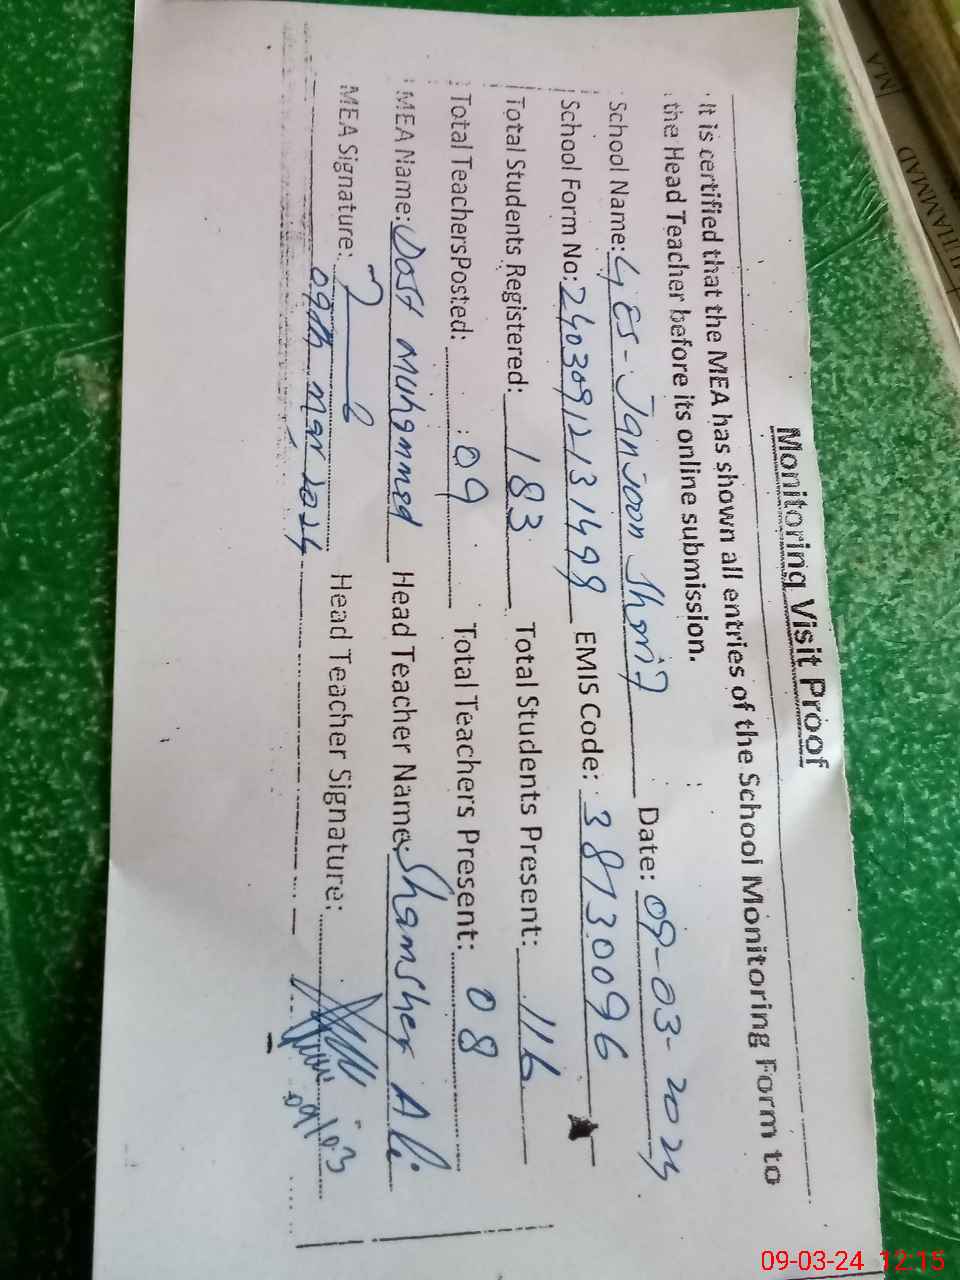 Monitoring Visit Proof
It is certified that the MEA has shown all entries of the School Monitoring Form to
the Head Teacher before its online submission.
School Name: GES-Janjoon Sharif Date: 09-03-2024
School Form No: 24030912131499 EMIS Code: 38730096
Total Students Registered: 183 Total Students Present: 116
Total TeachersPosted: 09 Total Teachers Present: 08
MEA Name: Dost Muhammed Head Teacher Name: Shamsher Ali
MEA Signature: Head Teacher Signature:
09th mar 2024 09/03
MUHAMMAD
MA
09-03-24 12:15